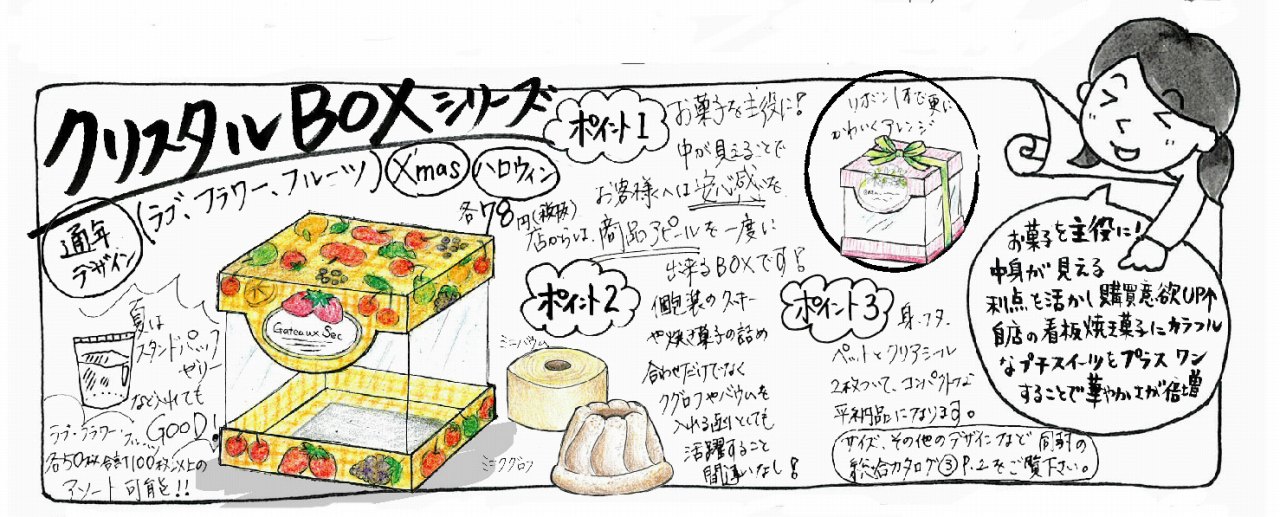 クリスタルBOXシリーズ
(ラブ、フラワー、フルーツ)
X'mas
ハロウィン
通年
デザイン
各78円(税抜)
ポイント1
お菓子を主役に!
中が見えることで
お客様へは安心感を
店からは、商品アピールを一度に
出来るBOXです!
リボン1本で更に
かわいくアレンジ
Gateaux Sec
夏は
スタンドパック
ゼリー
など入れても
GOOD!
ラブ・フラワー・フルーツ
各50枚合計100枚以上の
アソート可能!!
ポイント2
個包装のクッキー
や焼き菓子の詰め
合わせだけでなく
クグロフやバウムを
入れる函としても
活躍すること
間違いなし!
ミニバウム
ミニクグロフ
ポイント3
身、フタ、
ペットとクリアシール
2枚ついて、コンパクトな
平納品になります。
サイズ、その他のデザインなど同封の
総合カタログ③P.2をご覧下さい。
お菓子を主役に!
中身が見える
利点を活かし購買意欲UP↑
自店の看板焼き菓子にカラフル
なプチスイーツをプラスワン
することで華やかさが倍増